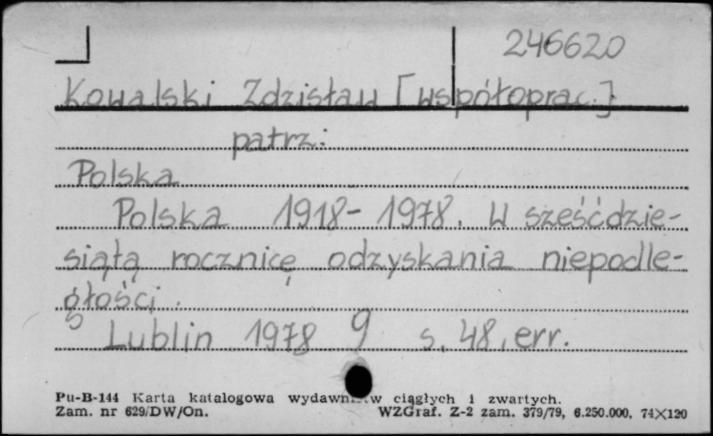 246620
Kowalski Zdzisław [współoprac.]
patrz:
Polska
Polska 1918-1978. W sześćdzie-
siątą rocznicę odzyskania niepodle-
głości.
Lublin 1978 g s. 48, err.
Pu-B-144 Karta katalogowa wydawnictw ciągłych i zwartych.
Zam. nr 629/DW/On. WZGraf. Z-2 zam. 379/79, 6.250.000, 74×120